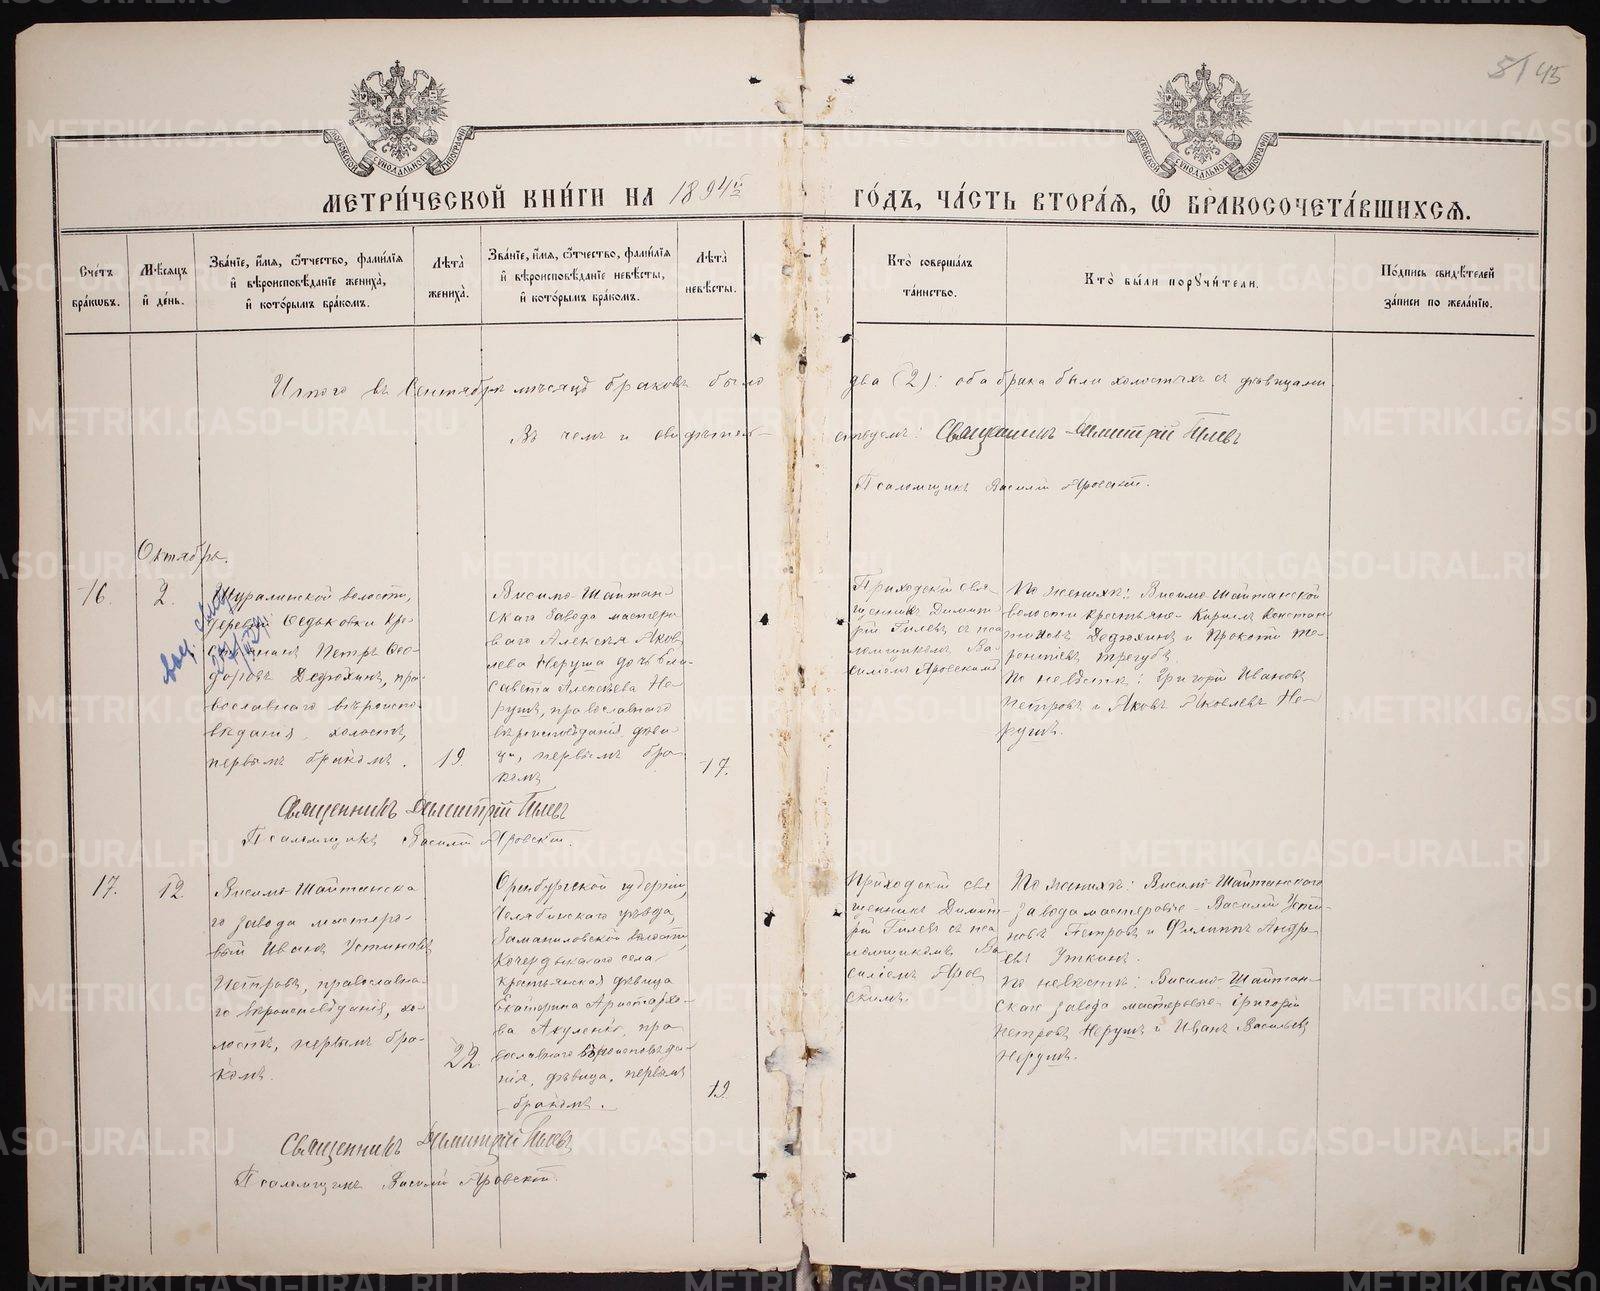 5/45
МОСКОВСКОЙ СѴНОДАЛЬНОЙ ТИПОГРАФІИ
МОСКОВСКОЙ СѴНОДАЛЬНОЙ ТИПОГРАФІИ
МЕТРИ́ЧЕСКОЙ КНИ́ГИ НА 1894й
ГО́ДЪ, ЧА́СТЬ ВТОРА́Ѧ, Ѡ҆ БРАКОСОЧЕТА́ВШИХСѦ.
Сче́тъ бра́кѡвъ.
Мѣ́сяцъ и҆ де́нь.
Зва́нїе, и҆́мѧ, ѻ҆́тчество, фами́лїѧ
и҆ вѣроисповѣ́данїе жениха̀,
и҆ кото́рымъ бра́комъ.
Лѣта̀ жениха̀.
Зва́нїе, и҆́мѧ, ѻ҆́тчество, фами́лїѧ
и҆ вѣроисповѣ́данїе невѣ́сты,
и҆ кото́рымъ бра́комъ.
Лѣта̀ невѣ́сты.
Кто̀ соверша́лъ
та́инство.
Кто̀ бы́ли порꙋчи́тели.
По́дпись свидѣ́телей
за́писи по жела́нїю.
Итого въ Сентябрѣ мѣсяцѣ браковъ было
два (2): оба брака были холостыхъ съ дѣвицами
Въ чемъ и свидѣтель-
ствуемъ: Священникъ Димитрій Гилевъ
Псаломщикъ Василій Яровскій.
Октябрь.
16.
2.
Шуралинской волости,
деревни Федьковки кре-
стьянинъ Петръ Ѳео-
доровъ Дедюхинъ, пра-
вославнаго вѣроиспо-
вѣданія, холостъ,
первымъ бракомъ.
19.
Висимо-Шайтан-
скаго Завода мастеро-
ваго Алексѣя Яков-
лева Неруша дочь Ели-
савета Алексѣева Не-
рушъ, православнаго
вѣроисповѣданія, дѣви-
ца, первымъ бра-
комъ
17.
Приходскій свя-
щенникъ Димит-
рій Гилевъ съ пса-
ломщикомъ Ва-
силіемъ Яровскимъ
По женихѣ: Висимо-Шайтанской
волости крестьяне-Кириллъ Констан-
тиновъ Дедюхинъ и Прокопій Те-
рентіевъ Трегубъ.
По невѣстѣ: Григорій Ивановъ
Петровъ и Яковъ Яковлевъ Не-
рушъ.
Священникъ Димитрій Гилевъ
Псаломщикъ Василій Яровскій.
17.
12.
Висимо-Шайтанска-
го завода мастеро-
вый Иванъ Устиновъ
Петровъ, православна-
го вѣроисповѣданія, хо-
лостъ, первымъ бра-
комъ.
22.
Оренбургской губерніи,
Челябинскаго уѣзда,
Заманиловской волости,
Кочердыкскаго села
крестьянская дѣвица
Екатерина Аристархо-
ва Акуленко, пра-
вославнаго вѣроисповѣда-
нія, дѣвица, первымъ
бракомъ.
19.
Приходскій свя-
щенникъ Димит-
рій Гилевъ съ пса-
ломщикомъ Ва-
силіемъ Яров-
скимъ.
По женихѣ: Висимо-Шайтанскаго
завода мастеровые-Василій Усти-
новъ Петровъ и Филиппъ Андре-
евъ Уткинъ.
По невѣстѣ: Висимо-Шайтан-
скаго завода мастеровые-Григорій
Петровъ Нерушъ и Иванъ Васильевъ
Нерушъ.
Священникъ Димитрій Гилевъ
Псаломщикъ Василій Яровскій.
METRIKI.GASO-URAL.RU